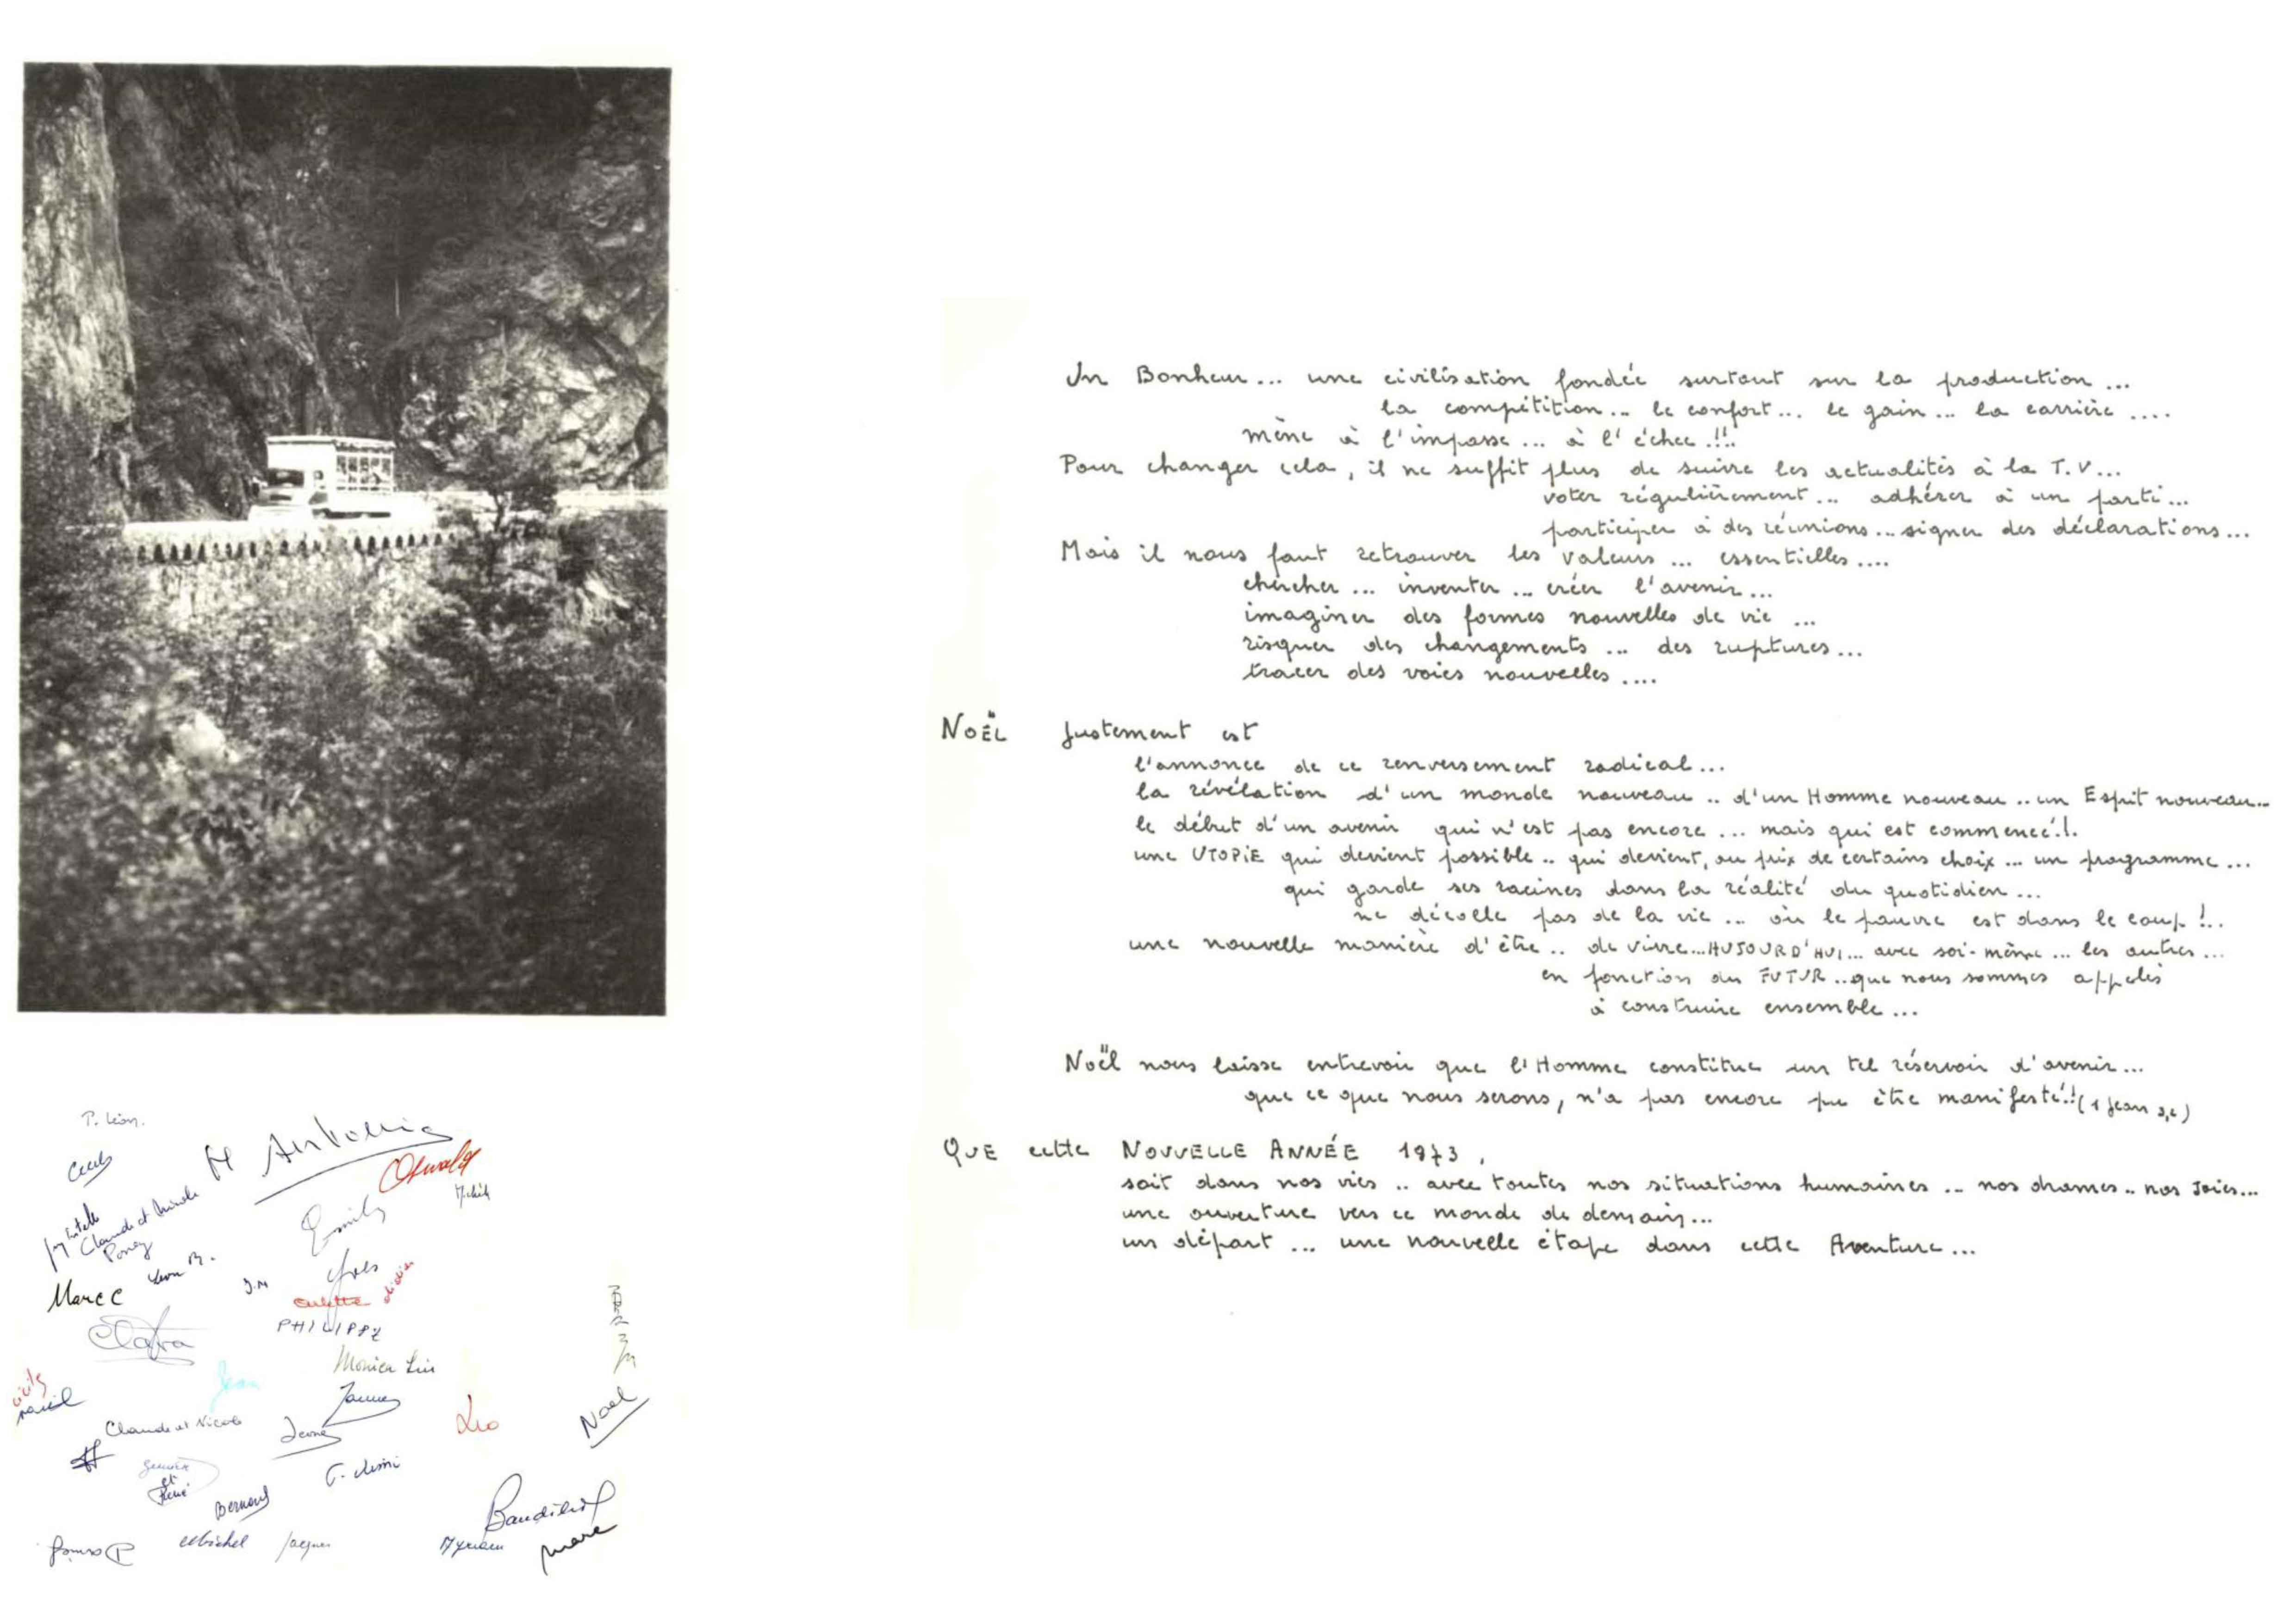 Un Bonheur... une civilisation fondée surtout sur la production...
la compétition... le confort... le gain... la carrière....
mène à l'impasse... à l'échec!!!.
Pour changer cela, il ne suffit plus de suivre les actualités à la T.V...
voter régulièrement... adhérer à un parti...
participer à des réunions... signer des déclarations...
Mais il nous faut retrouver les valeurs... essentielles....
chercher... inventer... créer l'avenir...
imaginer des formes nouvelles de vie...
risquer des changements... des ruptures...
tracer des voies nouvelles....
NOËL justement est
l'annonce de ce renversement radical...
la révélation d'un monde nouveau.. d'un Homme nouveau.. un Esprit nouveau...
le début d'un avenir qui n'est pas encore... mais qui est commencé!.
une UTOPIE qui devient possible.. qui devient, au prix de certains choix... un programme...
qui garde ses racines dans la réalité du quotidien...
ne décolle pas de la vie... où le pauvre est dans le coup!..
une nouvelle manière d'être.. de vivre... AUJOURD'HUI... avec soi-même... les autres...
en fonction du FUTUR.. que nous sommes appelés
à construire ensemble...
Noël nous laisse entrevoir que l'Homme constitue un tel réservoir d'avenir...
que ce que nous serons, n'a pas encore pu être manifesté!! (1 Jean 3,2)
QUE cette NOUVELLE ANNÉE 1973,
soit dans nos vies.. avec toutes nos situations humaines... nos drames.. nos Joies...
une ouverture vers ce monde de demain...
un départ... une nouvelle étape dans cette Aventure...
P. Léon.
Oswald
Emily
Claude et Nicole
Poney
Léon M.
Yves
J.M
didier
Marcc
PHILIPPE
Monica Luis
Jean
Claude et Nicole
Leo
Noel
et
René
Bernard
Michel
Jacques
Myriam
Marc